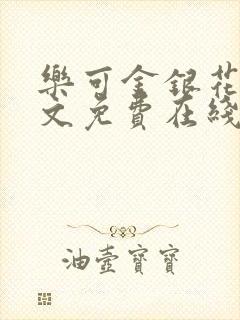 樂可金銀花
文免費在綫
油壺寶寶